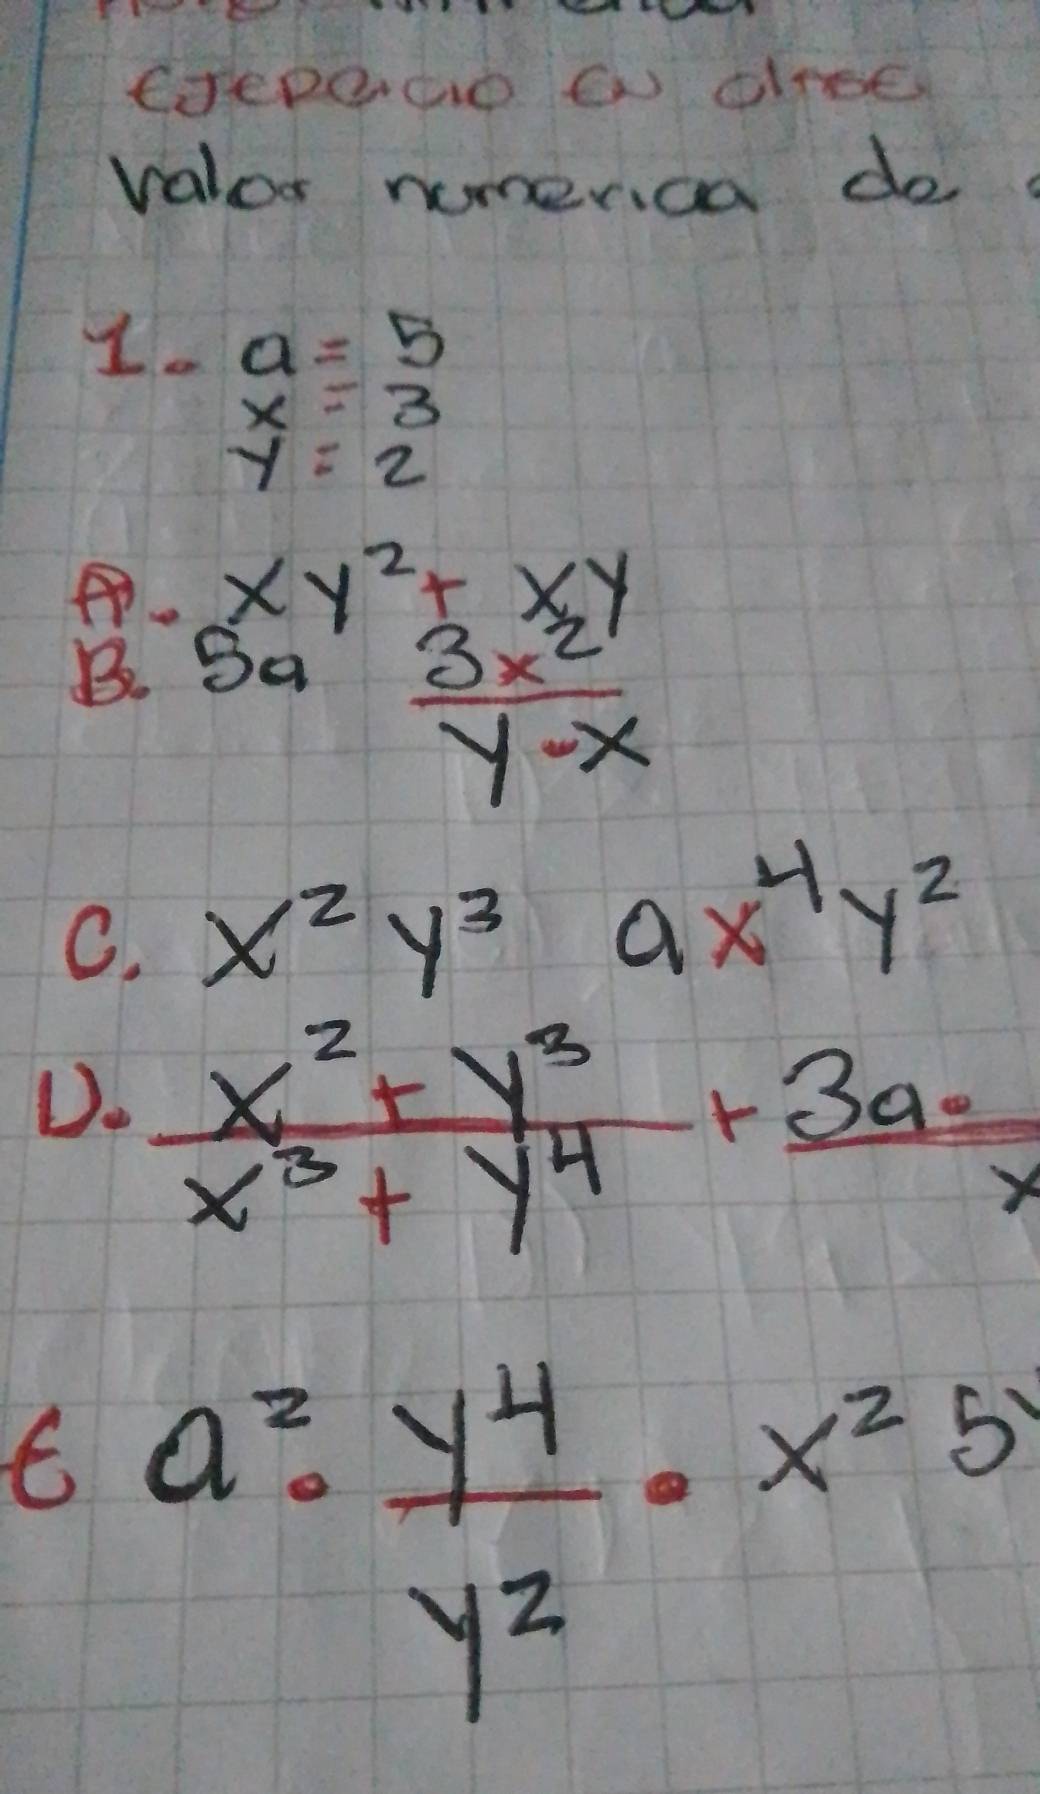 EJERCICIO EN clase
Valor numerica de
1. a = 5
x = 3
y = 2
A. xy² + xy
B. 5a 3x²
y - x
C. x² y³ ax⁴y²
D. x² + y³ + 3a.
x³ + y⁴ x
E a² . y⁴ . x² 5
y²